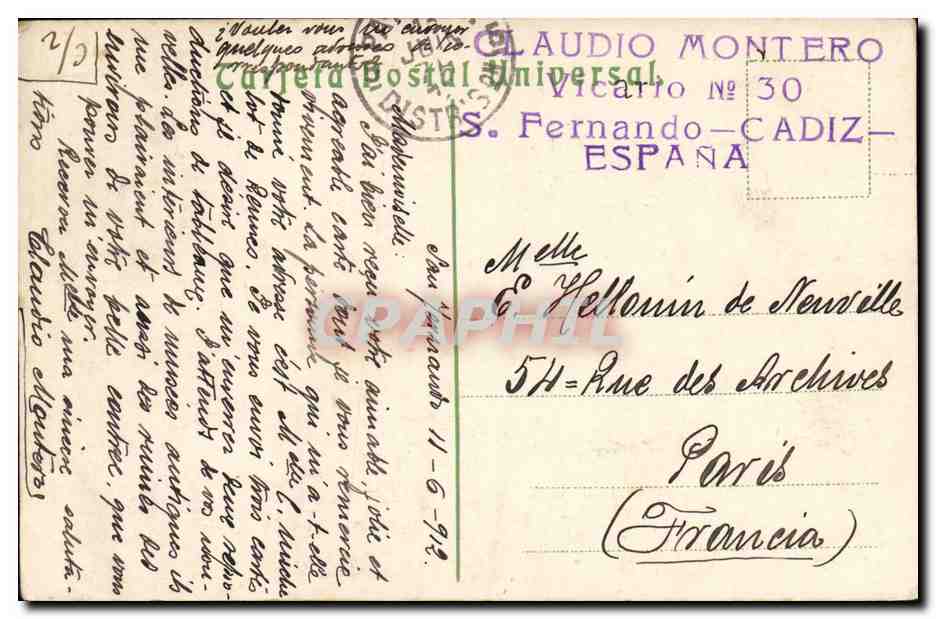 CLAUDIO MONTERO
Vicario Nº 30
S. Fernando-CADIZ-
ESPAÑA
Tarjeta Postal Universal
DISTR
Melle
E. Hellouin de Neuville
54=Rue des Archives
Paris
(Francia)
San Fernando 11-6-912.
Mademoiselle:
J'ai bien reçu votre aimable, jolie et
agreable carte dont je vous remercie
vivement. La persone qui m'a-t-elle
donné votre adresse c'est Melle C.
bot de Rennes. Je vous envoi trois cartes
et je désire que m'envoiez deux repro-
ductions de tableaux. J'attends de vos nou-
velles. Les intérieurs de musées antiques ils
me plaisaient et aussi des ruines des
environs de votre belle contrée, que vous
pouvez m'envoyer.
Recevez Melle ma sincère saluta-
tions
Claudio Montero
¿Voulez vous me envoyer
quelques adresses de co-
rrespondantes?
2/3
CPAPHIL